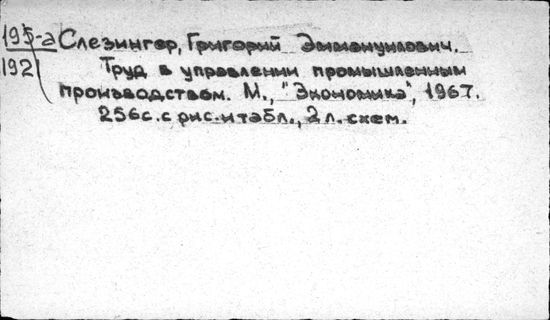 195-а Слезингер, Григорий Эммануилович.
1921 Труд в управлении промышленным
производством. М., "Экономика", 1967.
256с. с рис. и табл., 2 л. схем.